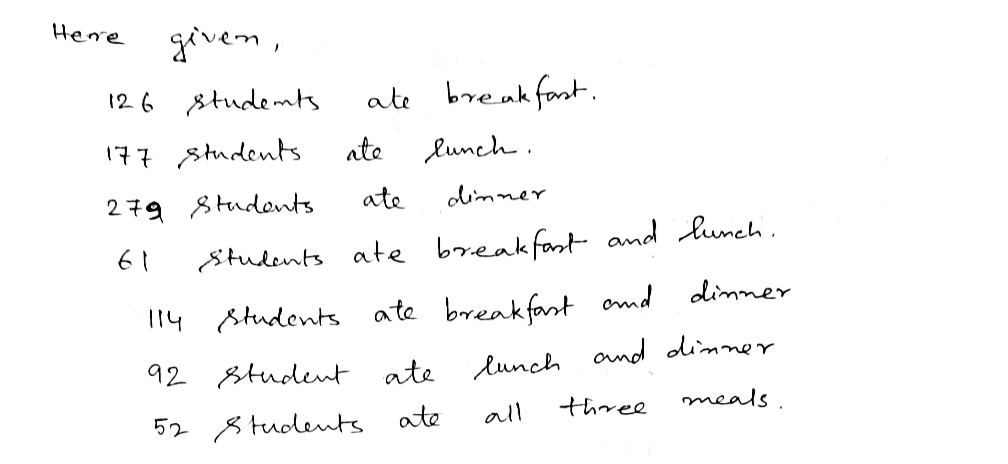 Here given,
126 students ate breakfast.
177 students ate lunch.
279 students ate dinner
61 students ate breakfast and lunch.
114 students ate breakfast and dinner
92 student ate lunch and dinner
52 students ate all three meals.